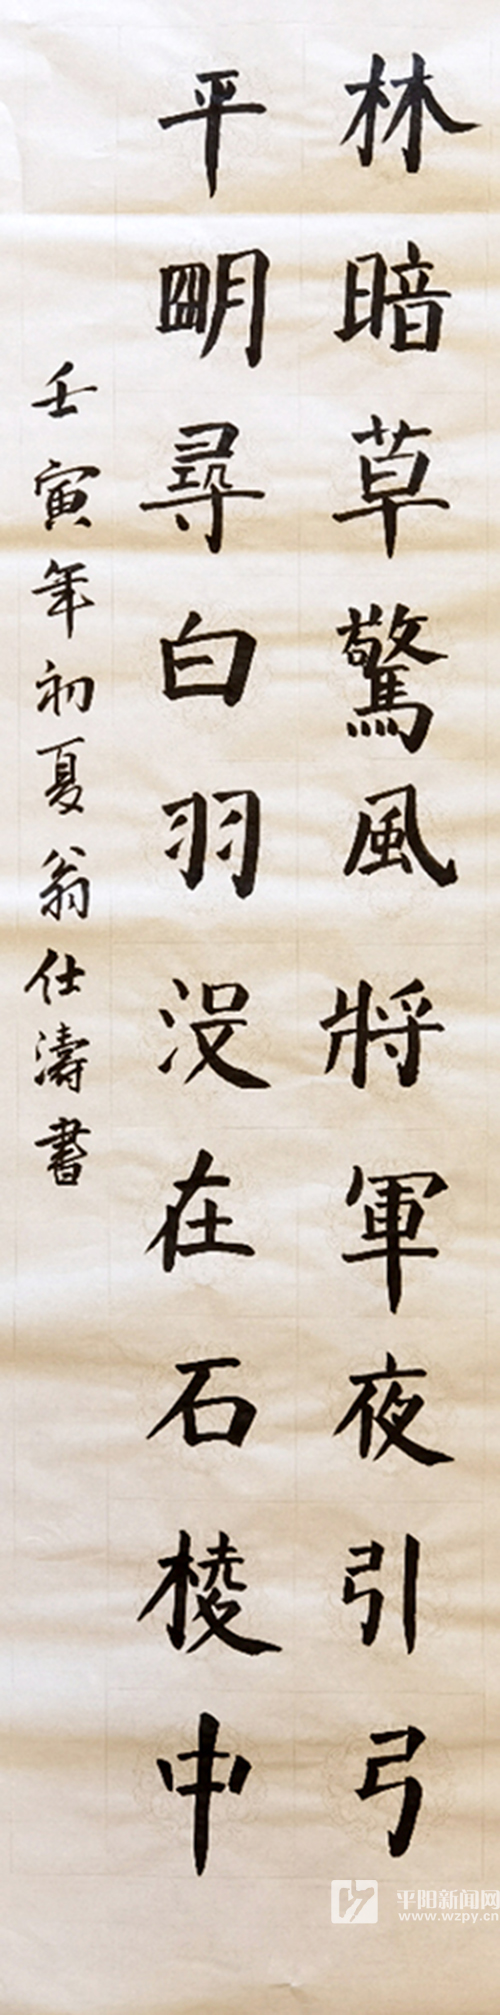 林暗草驚風將軍夜引弓
平朙尋白羽沒在石棱中
壬寅年初夏翁仕濤書
平阳新闻网
www.wzpy.cn